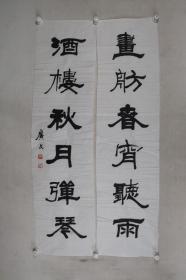 畫舫春宵聽雨
酒樓秋月彈琴